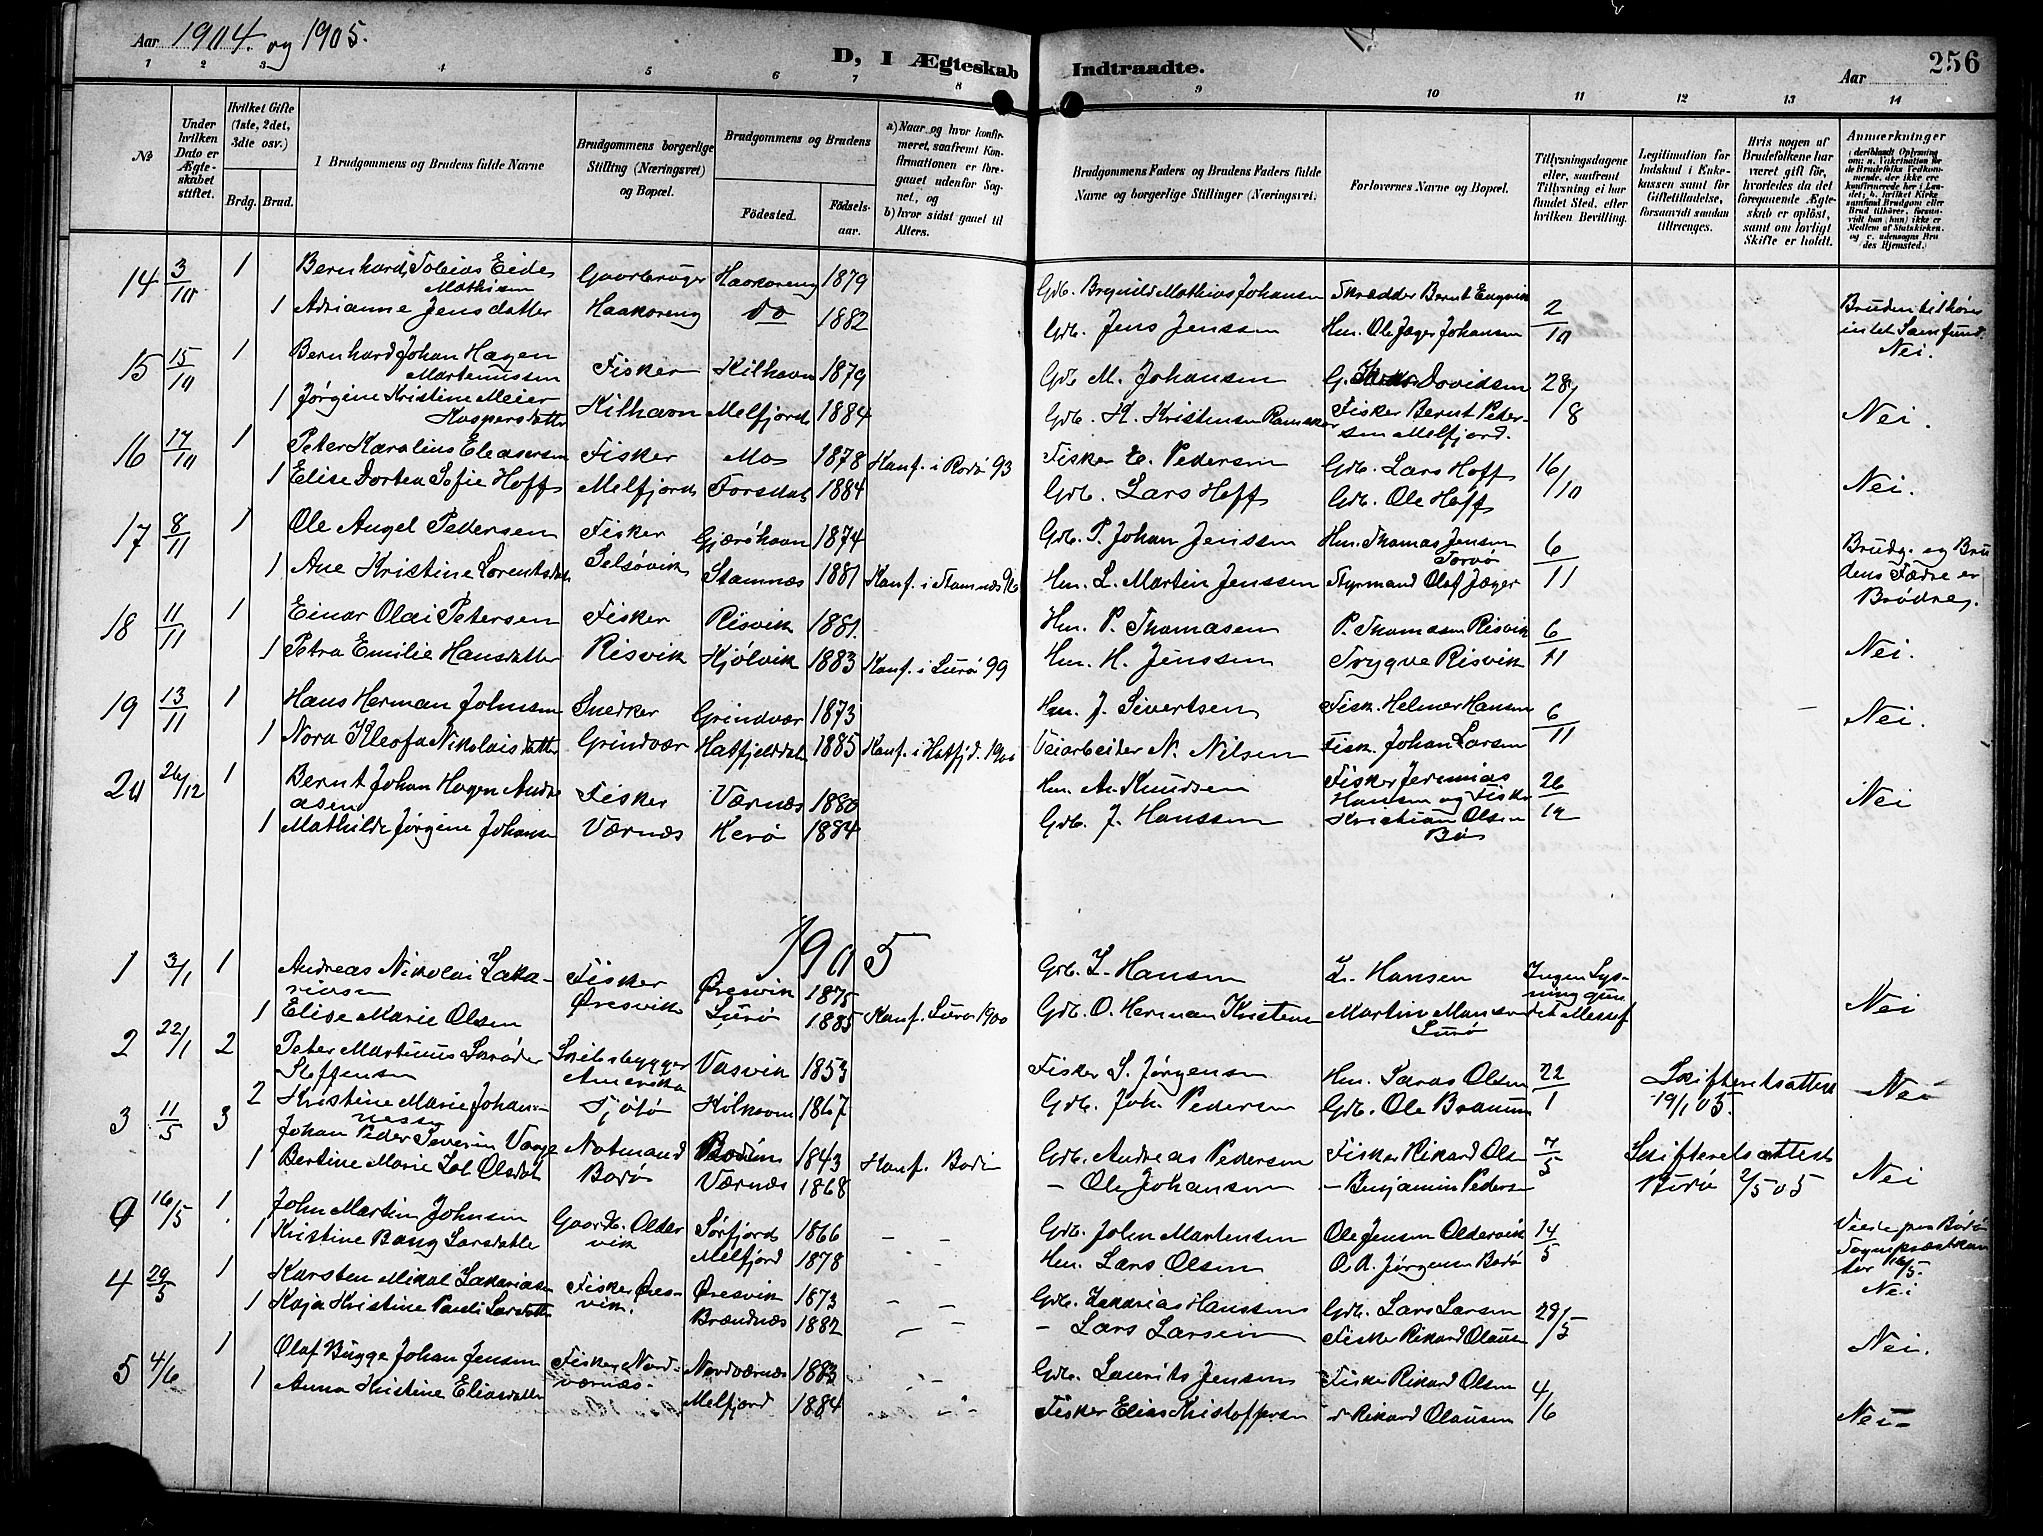 Aar 1904. og 1905.
D, I Ægteskab Indtraadte.
Aar
256
1 2 3 4 5 6 7 8 9 10 11 12 13 14
No
Under hvilken Dato er Ægteskabet stiftet.
Hvilket Gifte (1ste, 2det, 3die osv.)
Brdg. Brud.
1 Brudgommens og Brudens fulde Navne
Brudgommens borgerlige Stilling (Næringsvei) og Bopæl.
Brudgommens og Brudens
Födested.
Födselsaar.
a) Naar og hvor konfirmeret, saafremt Konfirmationen er foregaaet udenfor Sognet, og
b) hvor sidst gaaet til Alters.
Brudgommens Faders og Brudens Faders fulde Navne og borgerlige Stillinger (Næringsvei.
Forlovernes Navne og Bopæl.
Tillysningsdagene eller, saafremt Tillysning ei har fundet Sted, efter hvilken Bevilling.
Legitimation for Indskud i Enkekassen samt for Giftetilladelse, forsaavidt saadan tiltrænges.
Hvis nogen af Brudefolkene har været gift för, hvorledes da det foregaaende Ægteskab er oplöst, samt om lovligt Skifte er holdt.
Anmærkninger
14 3/10 1 Bernhard Tobias Eides Mathisen Gaardbruger Haakoreng 1879 Gdb. Brynild Mathias Johansen Skrædder Bernt Engvik 2/10 Bruden tilhører intet Samfund. Nei.
1 Adrianne Jensdatter Haakoreng do 1882 Gdb. Jens Jenssen Hm. Ole Jæger Johansen
15 15/10 1 Bernhard Johan Hagen Martenussen Fisker Kilhavn 1879 Gdb M. Johansen G. Davidsen 28/8
1 Jørgine Kristine Meier Kaspersdatter Kilhavn Melfjord 1884 Gdb. K. Kristensen Fisker Bernt Petersen Melfjord. Nei.
16 17/10 1 Peter Karolius Eleasersen Fisker Mo 1878 Konf. i Rødø 93 Fisker E. Pedersen Gdb. Lars Hoff 16/10
1 Elise Dortea Sofie Hoff Melfjord Forsdal 1884 Gdb. Lars Hoff Gdb. Ole Hoff Nei.
17 8/11 1 Ole Angel Pedersen Fisker Gjærøhavn 1874 Gdb. P. Johan Jenssen Hm. Thomas Jensen Torvø 6/11 Brudg. og Brudens Fædre er Brødre.
1 Ane Kristine Lorentsdat Selsøvik Stamnæs 1881 Konf. i Stamnæs 96 Hm. L. Martin Jenssen Styrmand Olaf Jæger
18 11/11 1 Einar Olai Petersen Fisker Risvik 1881. Hm. P. Thomasen P. Thomasen Risvik 6/11 Nei.
1 Petra Emilie Hansdatter Risvik Kjølvik 1883 Konf. i Lurø 99 Hm. H. Jenssen Trygve Risvik
19 13/11 1 Hans Herman Johnsen Snedker Grindvær 1873 Hm. J. Sivertsen Fisk. Helmer Hansen 6/11 Nei.
1 Nora Kleofa Nikolaisdatter Grindvær Hatfjelddalen 1885 Konf. i Hatfjd. 1900 Veiarbeider N. Nilsen Fisk. Johan Larsen
20 26/12 1 Bernt Johan Hagen Andreasen Fisker Værnæs 1880 Hm. A. Knudsen Fisker Jeremias Hansen og Fisker Kristian Olsen 26/12 Nei
1 Mathilde Jørgine Johansen Værnæs Kerø 1884 Gdb. J. Hanssen
1905
1 3/1 1 Andreas Nikolai Zakariasen Fisker Øresvik 1875 Gdb. Z. Hansen Z. Hansen Ingen Lysning
1 Elise Marie Olsen Øresvik Lurø 1885 Konf. Lurø 1900 Gdb. O. Herman Kristens Martin Lurø Nei
2 22/1 2 Peter Martinus Schrøder Steffensen Skibsbygger Amerika Vasvik 1853 Fisker S. Jørgensen Hm. Olsen 22/1 Skifteretsattest 19/1 05. Nei
2 Kristine Marie Johannessen Tjøtø Kilhavn 1867 Gdb. Joh. Pedersen Gdb. Ole
3 11/5 3 Johan Peder Severin Vaage Notmand Bodin 1843 Konf. Bodin Gdb. Andreas Pedersen Fisker Rikard Olsen 7/5 Skifteretsattest Nei
1 Bertine Marie Olsdat Bodø Værnæs 1868 – Ole Johansen – Benjamin Peders 2/5 05
0 16/5 1 John Martin Johnsen Gaardb. Oldervik Sørfjord 1866 – – Gdb. John Martensen Ole Jensen Oldervik 14/5
1 Kristine Bang Larsdatte Melfjord 1878 Hm. Lars Olsen O. A. Jørgensen Bodø Nei
4 29/5 1 Karsten Mikal Zakariasen Fisker Øresvik. Øresvik 1873 – – Gdb. Zakarias Hanssen Gdb. Lars Larsen 29/5
1 Kaja Kristine Pauli Larsdatter Brændnæs 1882 – – – Lars Larsen Fisker Rikard Olausen Nei.
5 4/6 1 Olaf Bugge Johan Jensen Fisker Nordværnæs. Nordværnæs 1883 Gdb. Laurits Jensen Fisker Rikard Olsen 4/6
1 Anna Kristine Eliasdatter Melfjord 1884 Fisker Elias Kristoffersen Rikard Olausen Nei –